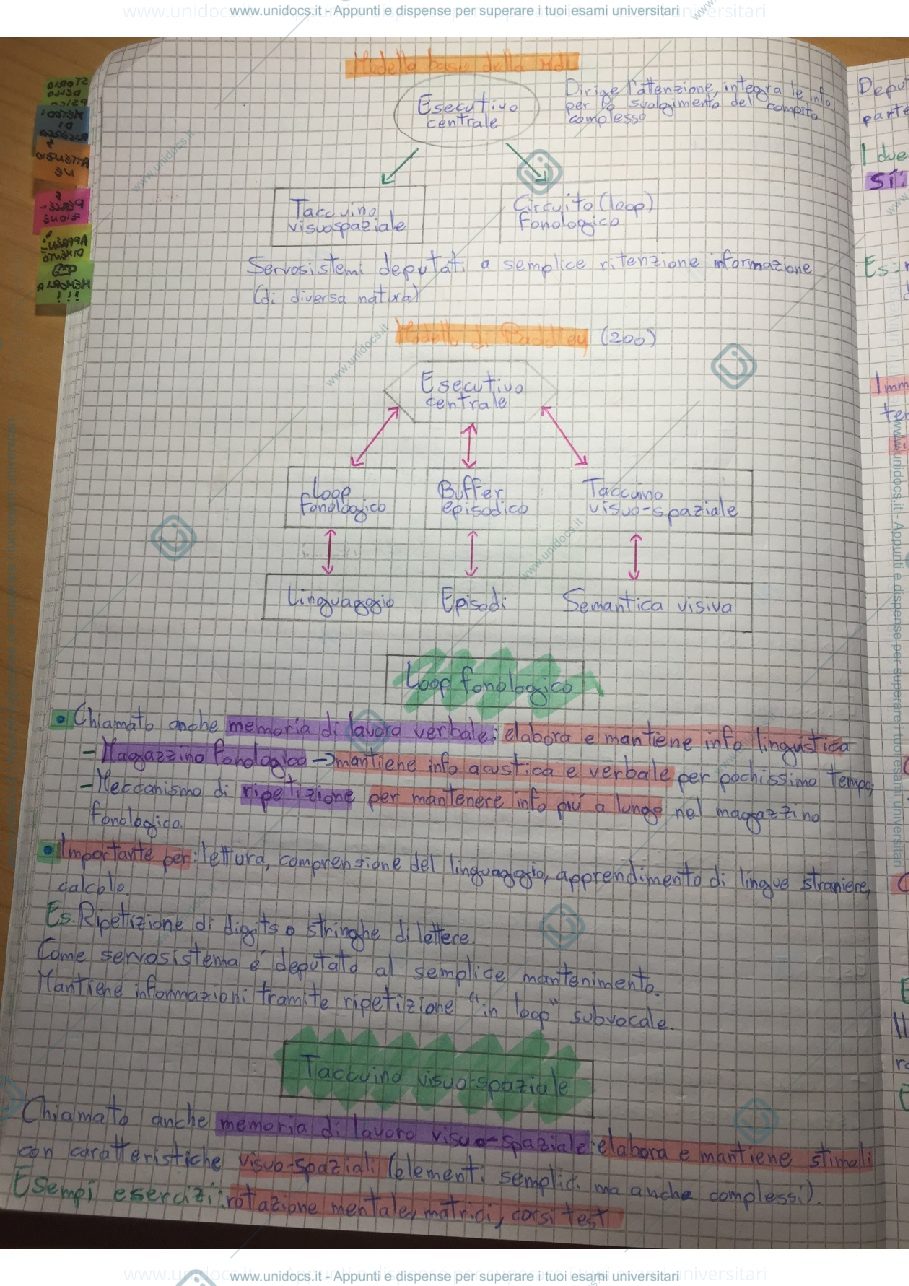 www.unidocs.it - Appunti e dispense per superare i tuoi esami universitari
Modello base della MdL
Esecutivo
centrale
Dirige l'attenzione, integra le info
per lo svolgimento del compito
complesso
Taccuino
visuospaziale
Circuito (loop)
fonologico
Servosistemi deputati a semplice ritenzione informazione
(di diversa natura)
Modello di Baddley (200)
Esecutivo
centrale
Loop
fonologico
Buffer
episodico
Taccuino
visuo-spaziale
Linguaggio
Episodi
Semantica visiva
Loop fonologico
• Chiamato anche memoria di lavoro verbale: elabora e mantiene info linguistica
- Magazzino fonologico → mantiene info acustica e verbale per pochissimo tempo
- Meccanismo di ripetizione per mantenere info più a lungo nel magazzino
fonologico.
• Importante per: lettura, comprensione del linguaggio, apprendimento di lingue straniere,
calcolo.
Es. Ripetizione di digits o stringhe di lettere.
Come servosistema é deputato al semplice mantenimento.
Mantiene informazioni tramite ripetizione "in loop" subvocale.
Taccuino visuo-spaziale
Chiamato anche memoria di lavoro visuo-spaziale: elabora e mantiene stimoli
con caratteristiche visuo-spaziali (elementi semplici ma anche complessi).
Esempi esercizi: rotazione mentale, matrici, corsi test
www.unidocs.it - Appunti e dispense per superare i tuoi esami universitari